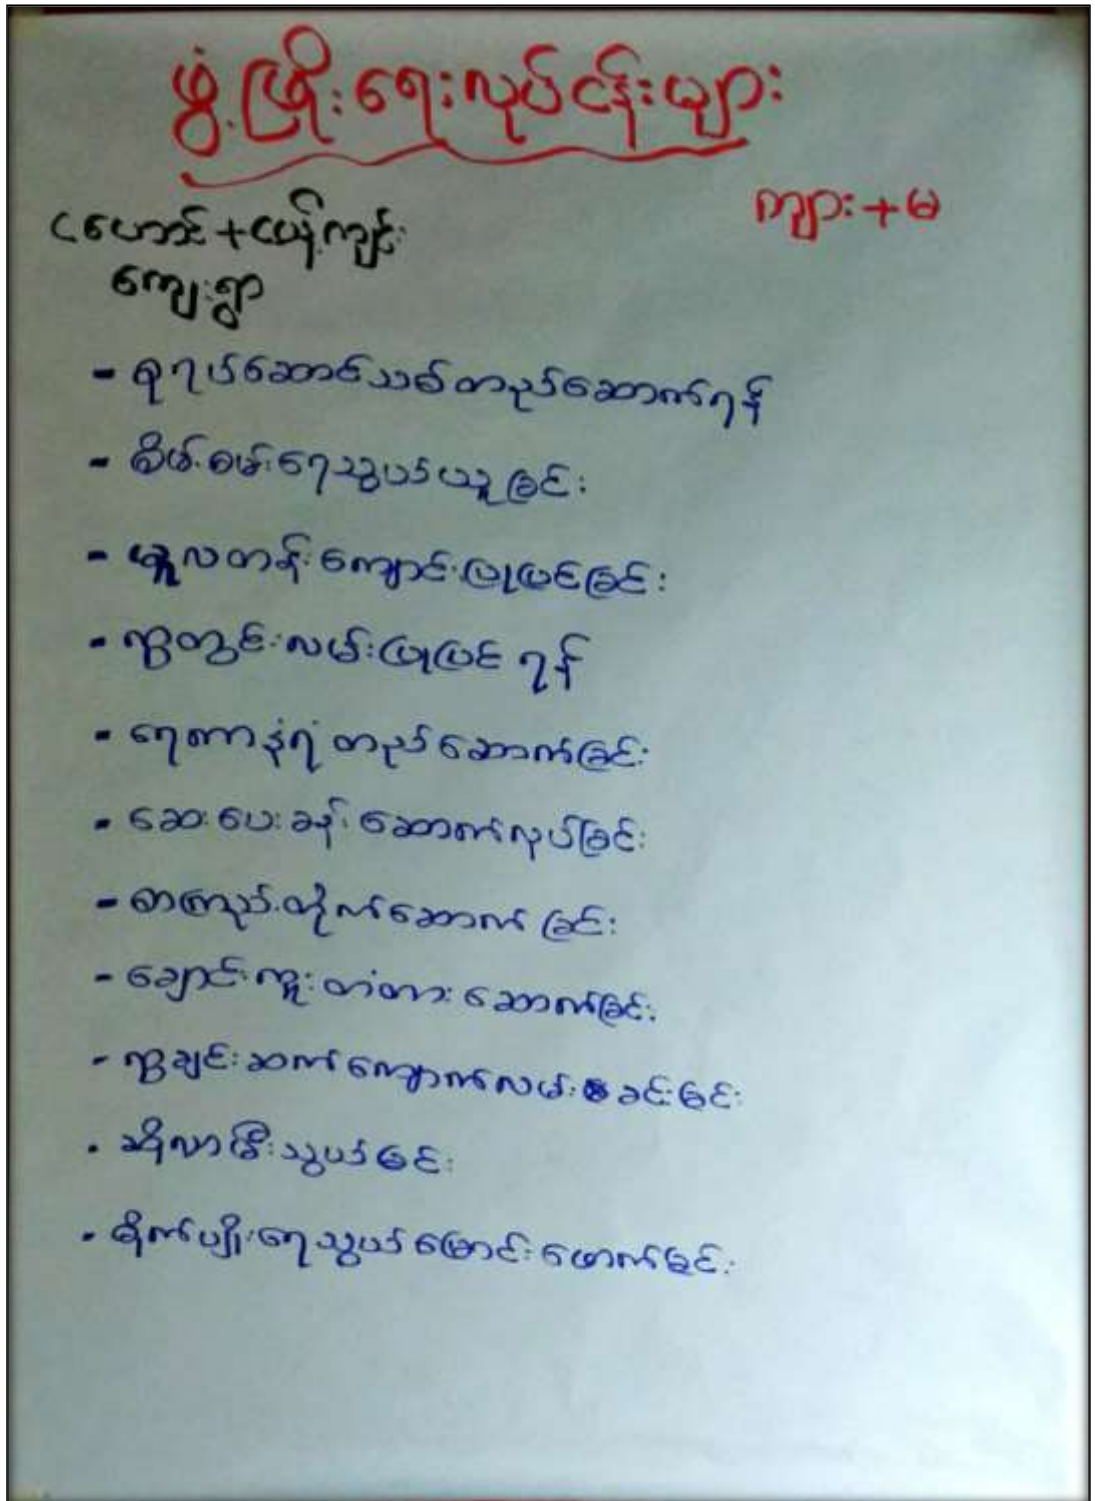 ဖွံ့ဖြိုးရေးလုပ်ငန်းများ
ကျား+မ
ငဟောင်း+ငပိန်ကျင်း
ကျေးရွာ
- ရုရယ်ဆောင်သစ်တည်ဆောက်ရန်
- စိမ့်စမ်းရေသွယ်ယူခြင်း
- မူလတန်းကျောင်းပြုပြင်ခြင်း
- ရွာတွင်းလမ်းပြုပြင်ရန်
- ရေတာနံရံတည်ဆောက်ခြင်း
- ဆေးပေးခန်းဆောက်လုပ်ခြင်း
- စာကြည့်တိုက်ဆောက်ခြင်း
- ချောင်းကူးတံတားဆောက်ခြင်း
- ရွာချင်းဆက်ကျောက်လမ်းခင်းခြင်း
- ဆိုလာမီးသွယ်ခြင်း
- စိုက်ပျိုးရေသွယ်မြောင်းဖောက်ခြင်း